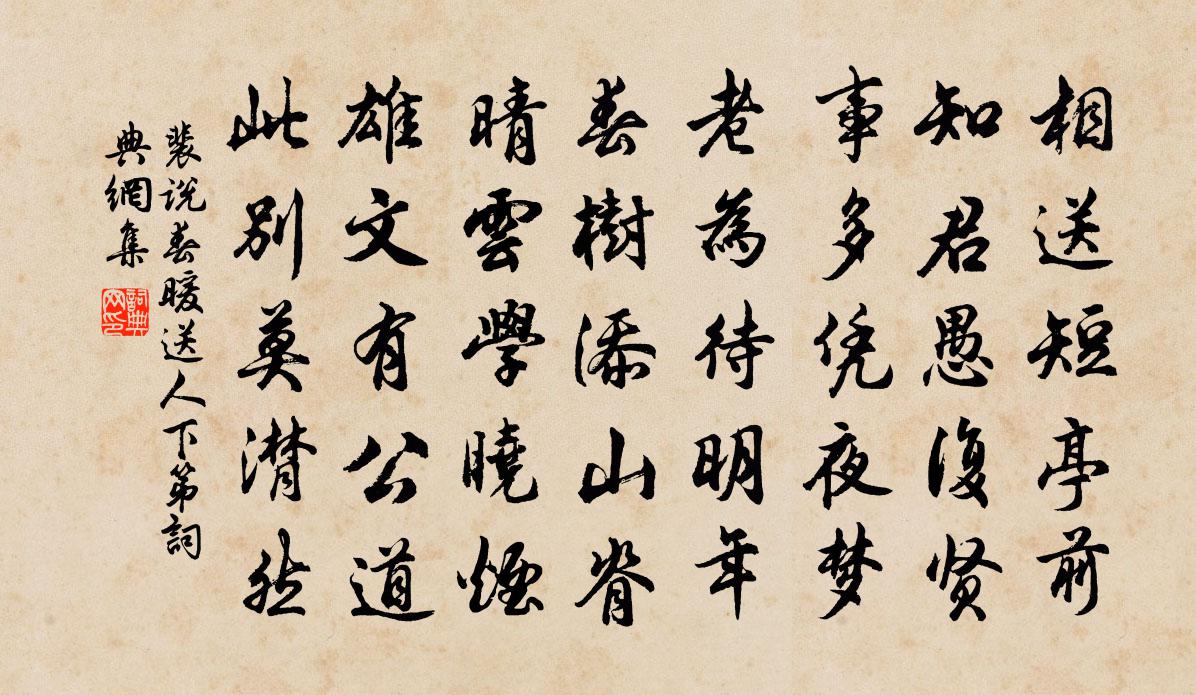 相送短亭前
知君愚復贤
事多凭夜梦
老為待明年
春樹添山脊
晴雲學曉煙
雄文有公道
此別莫潸然
裴说春暖送人下第詞
典網集
詞典
网印